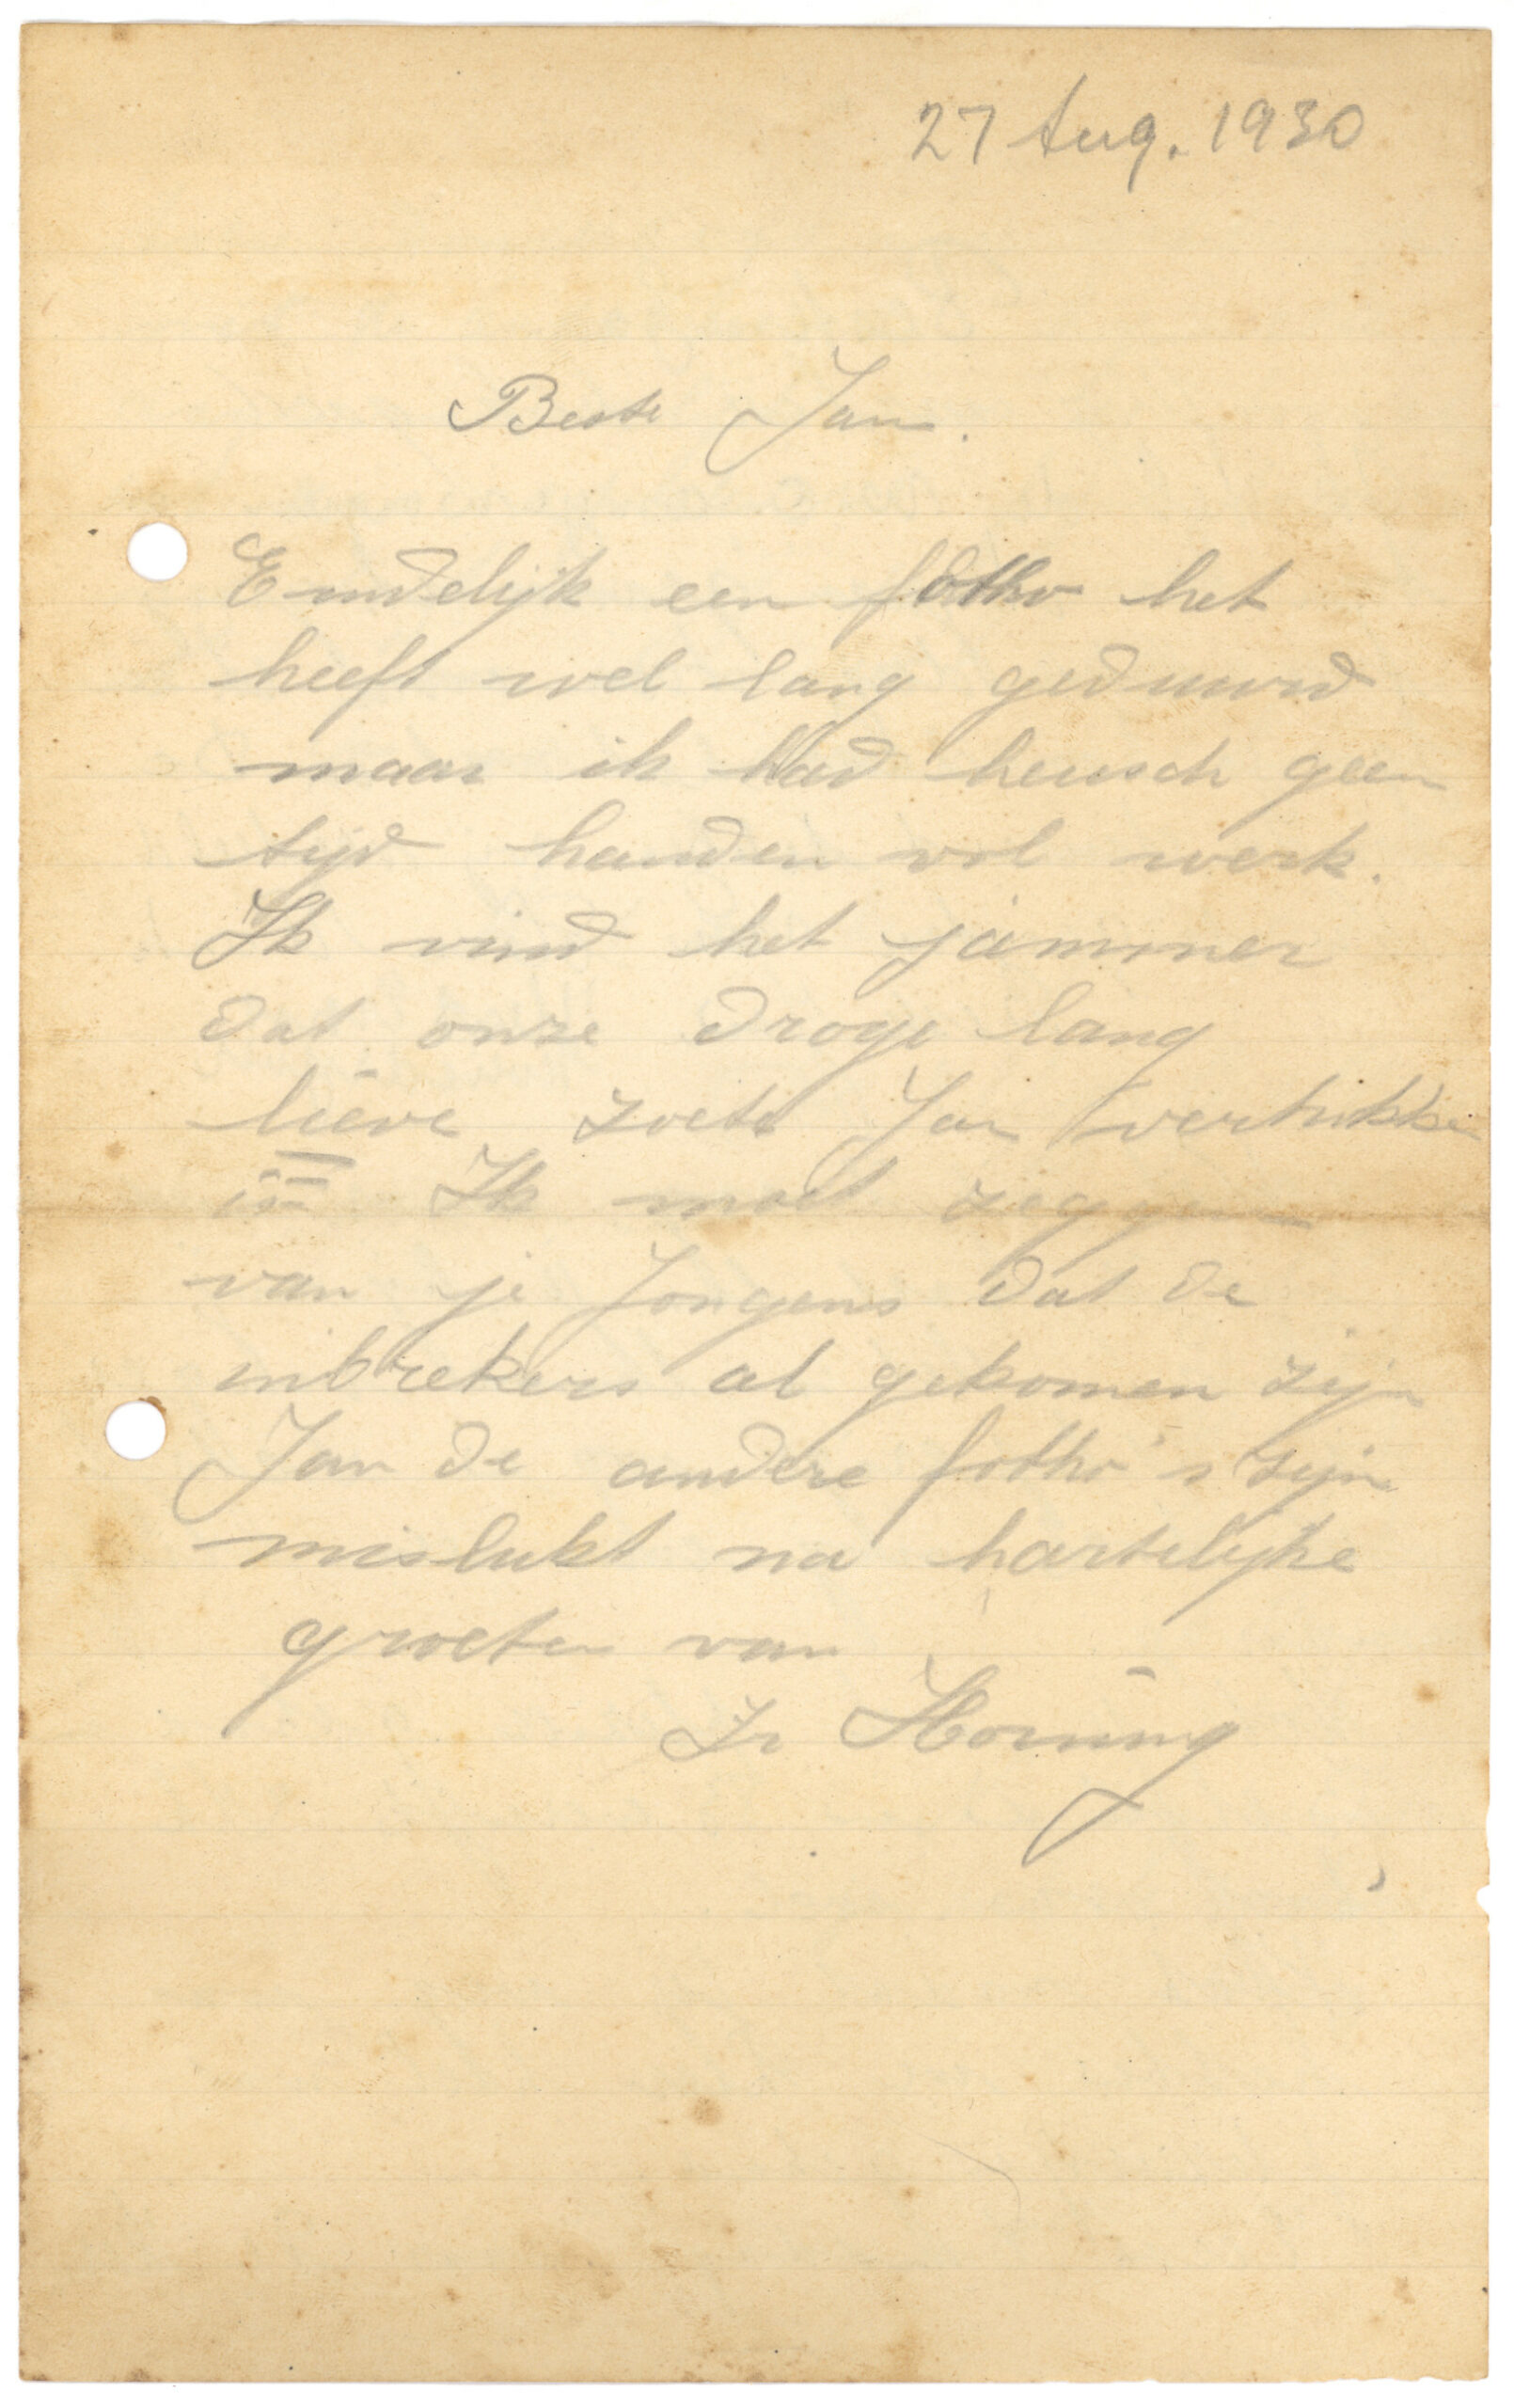 27 Aug. 1930
Beste Jan.
Eindelijk een fotho het
heeft wel lang geduurd
maar ik had heusch geen
tijd handen vol werk.
Ik vind het jammer
dat onze droge lang
lieve zoete Jan vertrokken
is. Ik moet zeggen
van je Jongens dat de
inbrekers al gekomen zijn
Jan de andere fotho's zijn
mislukt na hartelijke
groeten van